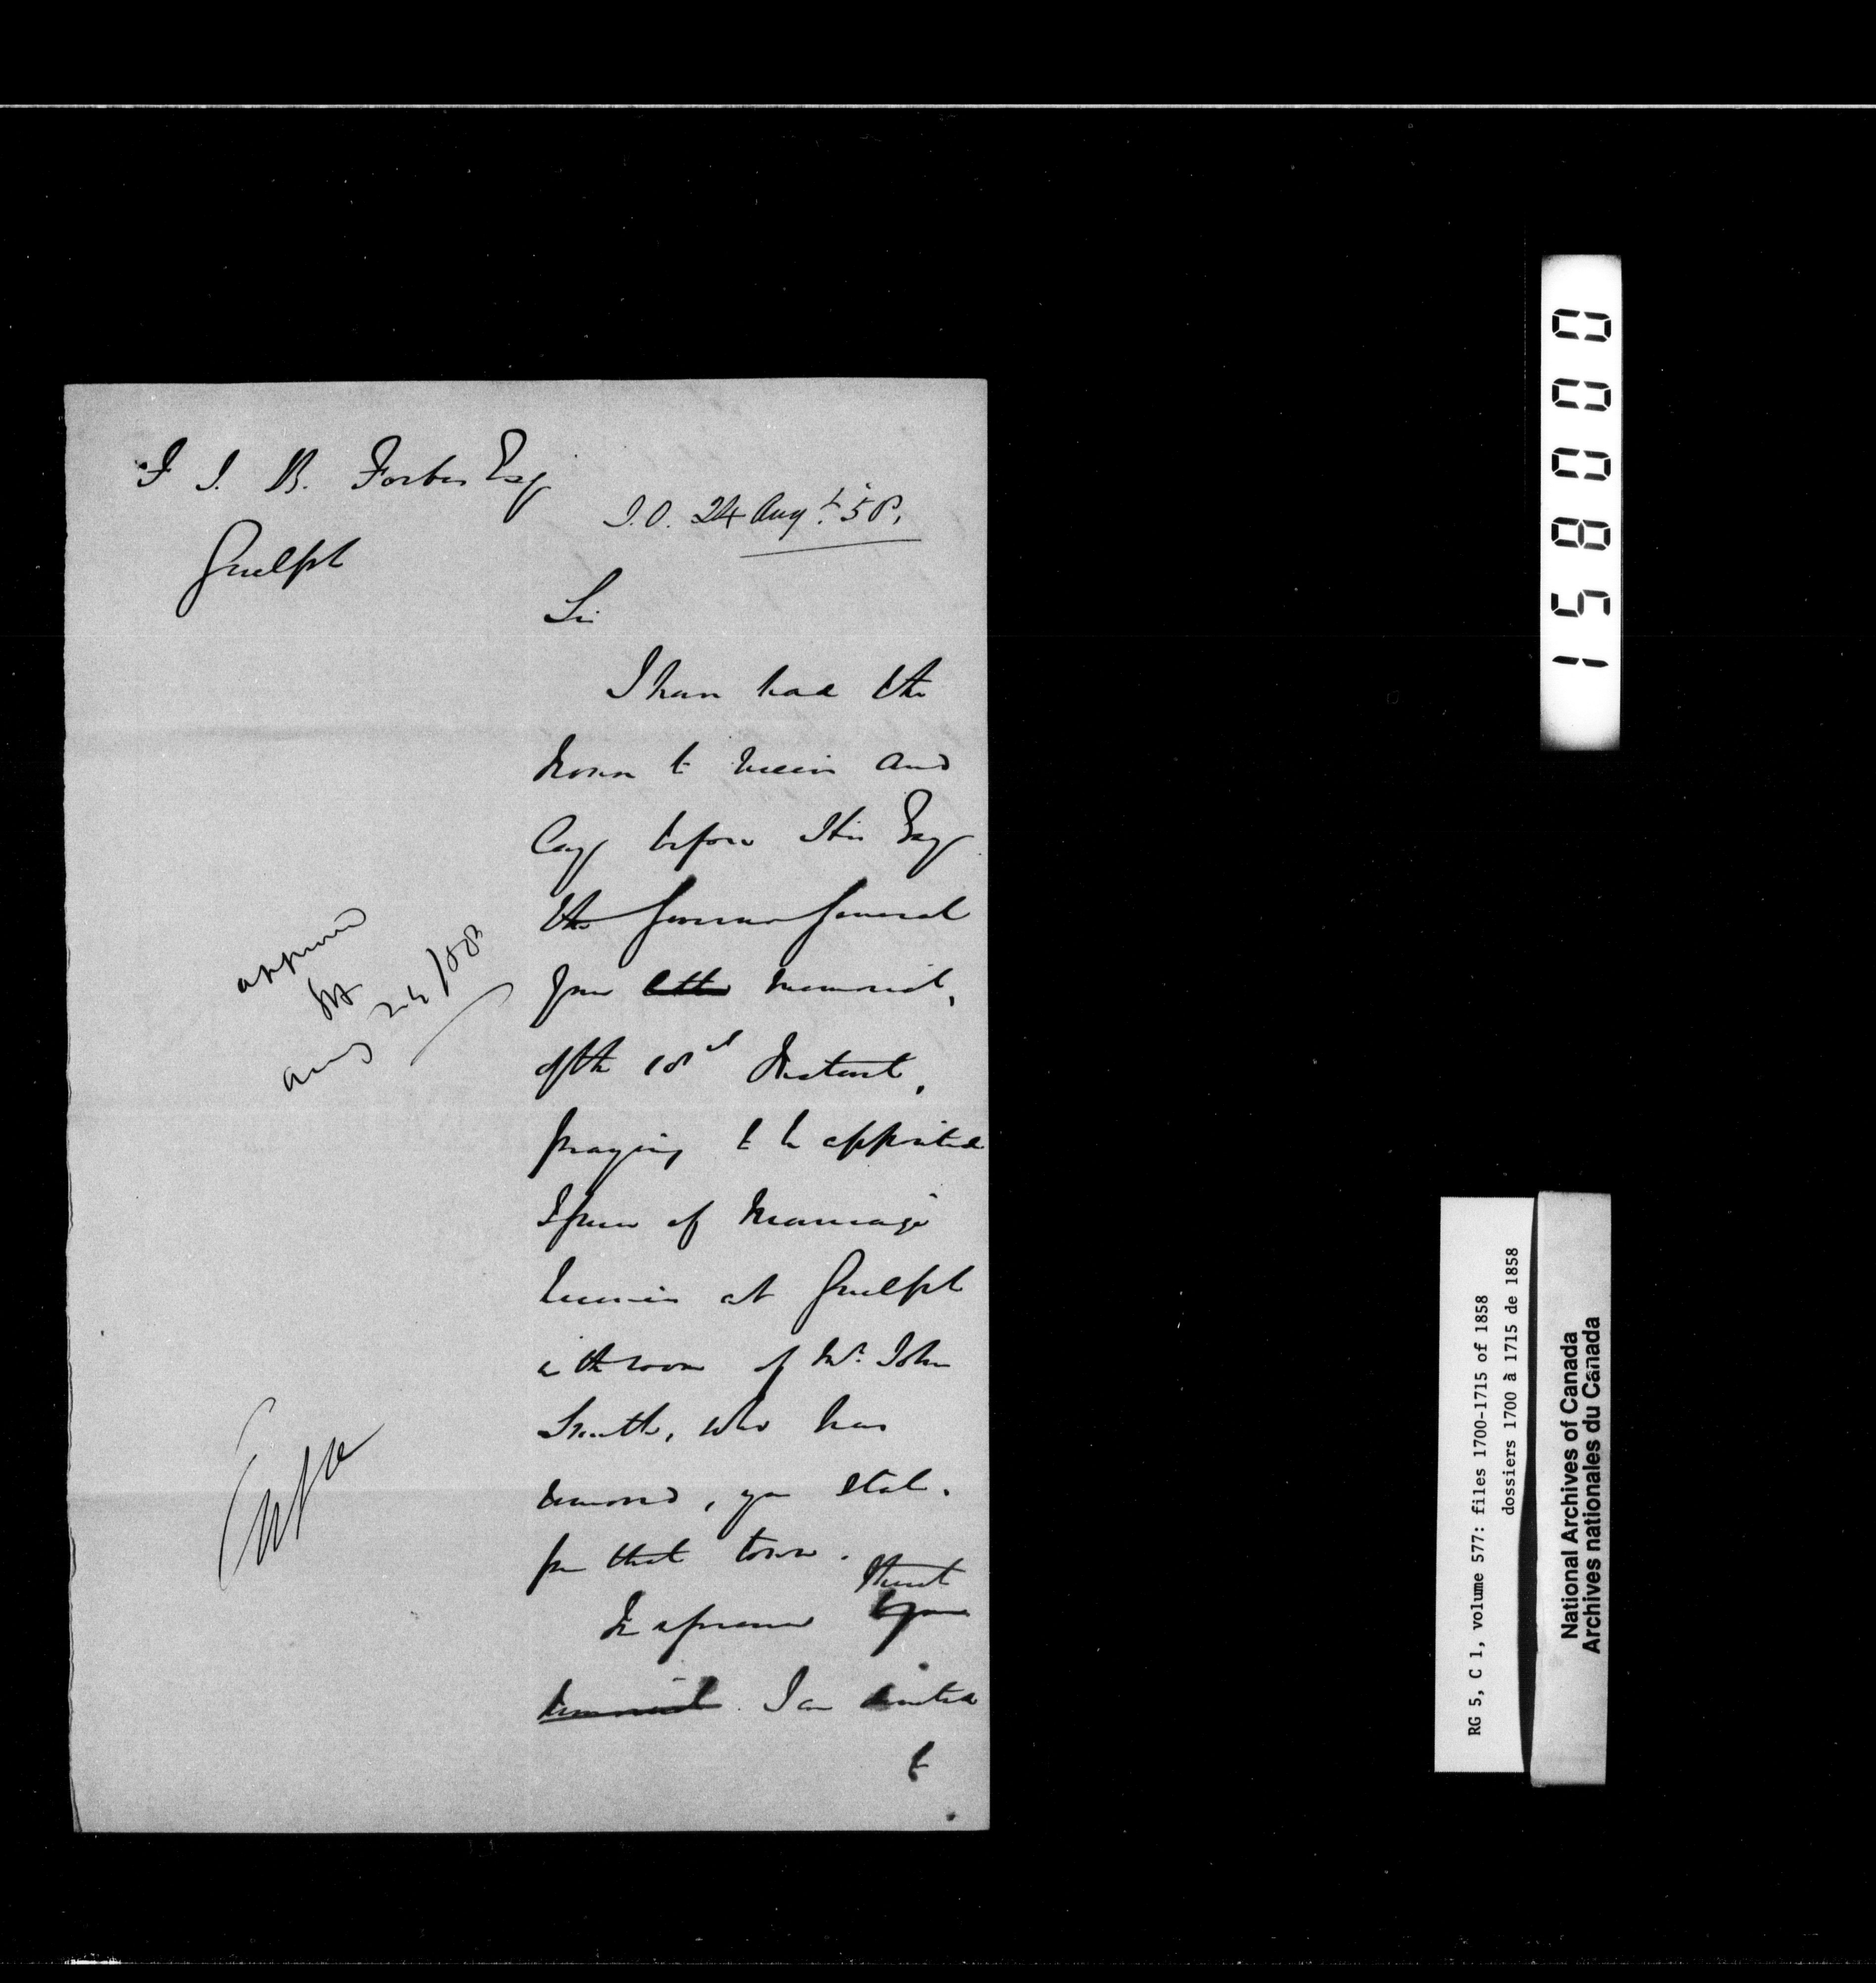 F J. B. Forbes Esq
Guelph
S.O. 24 Augt. 58.
Sir
I have had the
honor to receive and
lay before His Excy
the Governor General
your memorial,
of the 18th Instant,
praying to be appointed
Issuer of Marriage
Licenses at Guelph
in the room of Mr. John
Smith, who has
removed, you state,
from that town.
In answer thereto
I am directed
to
approved
Aug 24/58
158000
RG 5, C 1, volume 577: files 1700-1715 of 1858
dossiers 1700 à 1715 de 1858
National Archives of Canada
Archives nationales du Canada